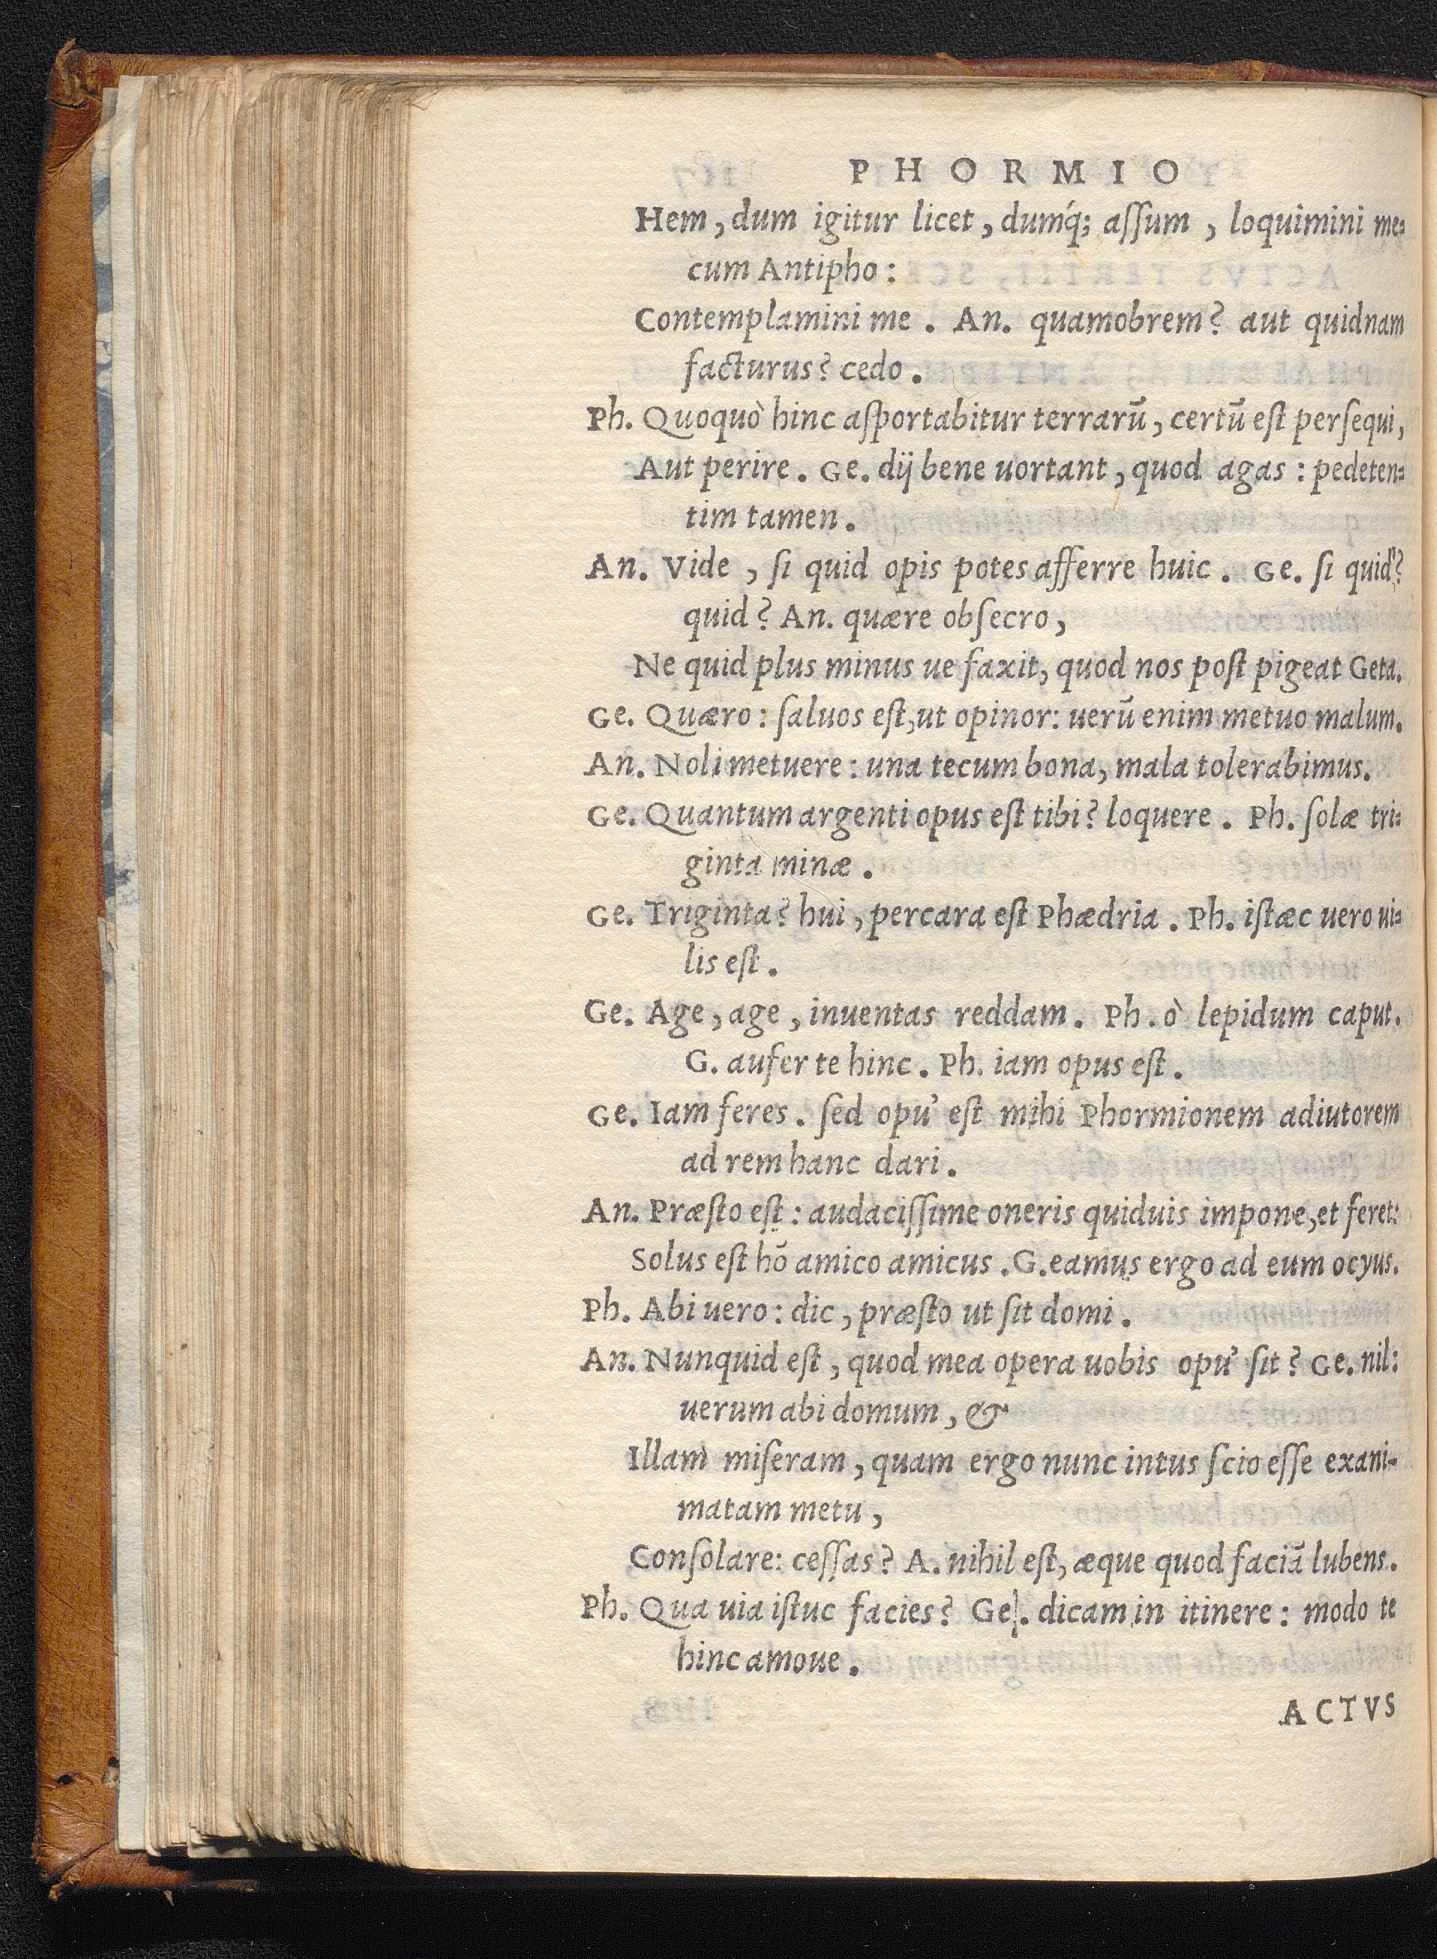 PHORMIO
Hem, dum igitur licet, dumq́; aſſum, loquimini me-
cum Antipho:
Contemplamini me. An. quamobrem? aut quidnam
facturus? cedo.
Ph. Quoquò hinc aſportabitur terrarū, certū eſt perſequi,
Aut perire. Ge. dij bene uortant, quod agas: pedeten-
tim tamen.
An. Vide, ſi quid opis potes afferre huic. Ge. ſi quid?
quid? An. quære obſecro,
Ne quid plus minus ue faxit, quod nos poſt pigeat Geta.
Ge. Quæro: ſaluos eſt, ut opinor: uerū enim metuo malum.
An. Noli metuere: una tecum bona, mala tolerabimus.
Ge. Quantum argenti opus eſt tibi? loquere. Ph. ſolæ tri-
ginta minæ.
Ge. Triginta? hui, percara eſt Phædria. Ph. iſtæc uero ui-
lis eſt.
Ge. Age, age, inuentas reddam. Ph. ò lepidum caput.
G. aufer te hinc. Ph. iam opus eſt.
Ge. Iam feres. ſed opu' eſt mihi Phormionem adiutorem
ad rem hanc dari.
An. Præſto eſt: audaciſſime oneris quiduis impone, et feret:
Solus eſt hō amico amicus. G. eamus ergo ad eum ocyus.
Ph. Abi uero: dic, præſto ut ſit domi.
An. Nunquid eſt, quod mea opera uobis opu' ſit? Ge. nil:
uerum abi domum, &
Illam miſeram, quam ergo nunc intus ſcio eſſe exani-
matam metu,
Conſolare: ceſſas? A. nihil eſt, æque quod faciā lubens.
Ph. Qua uia iſtuc facies? Ge. dicam in itinere: modo te
hinc amoue.
ACTVS